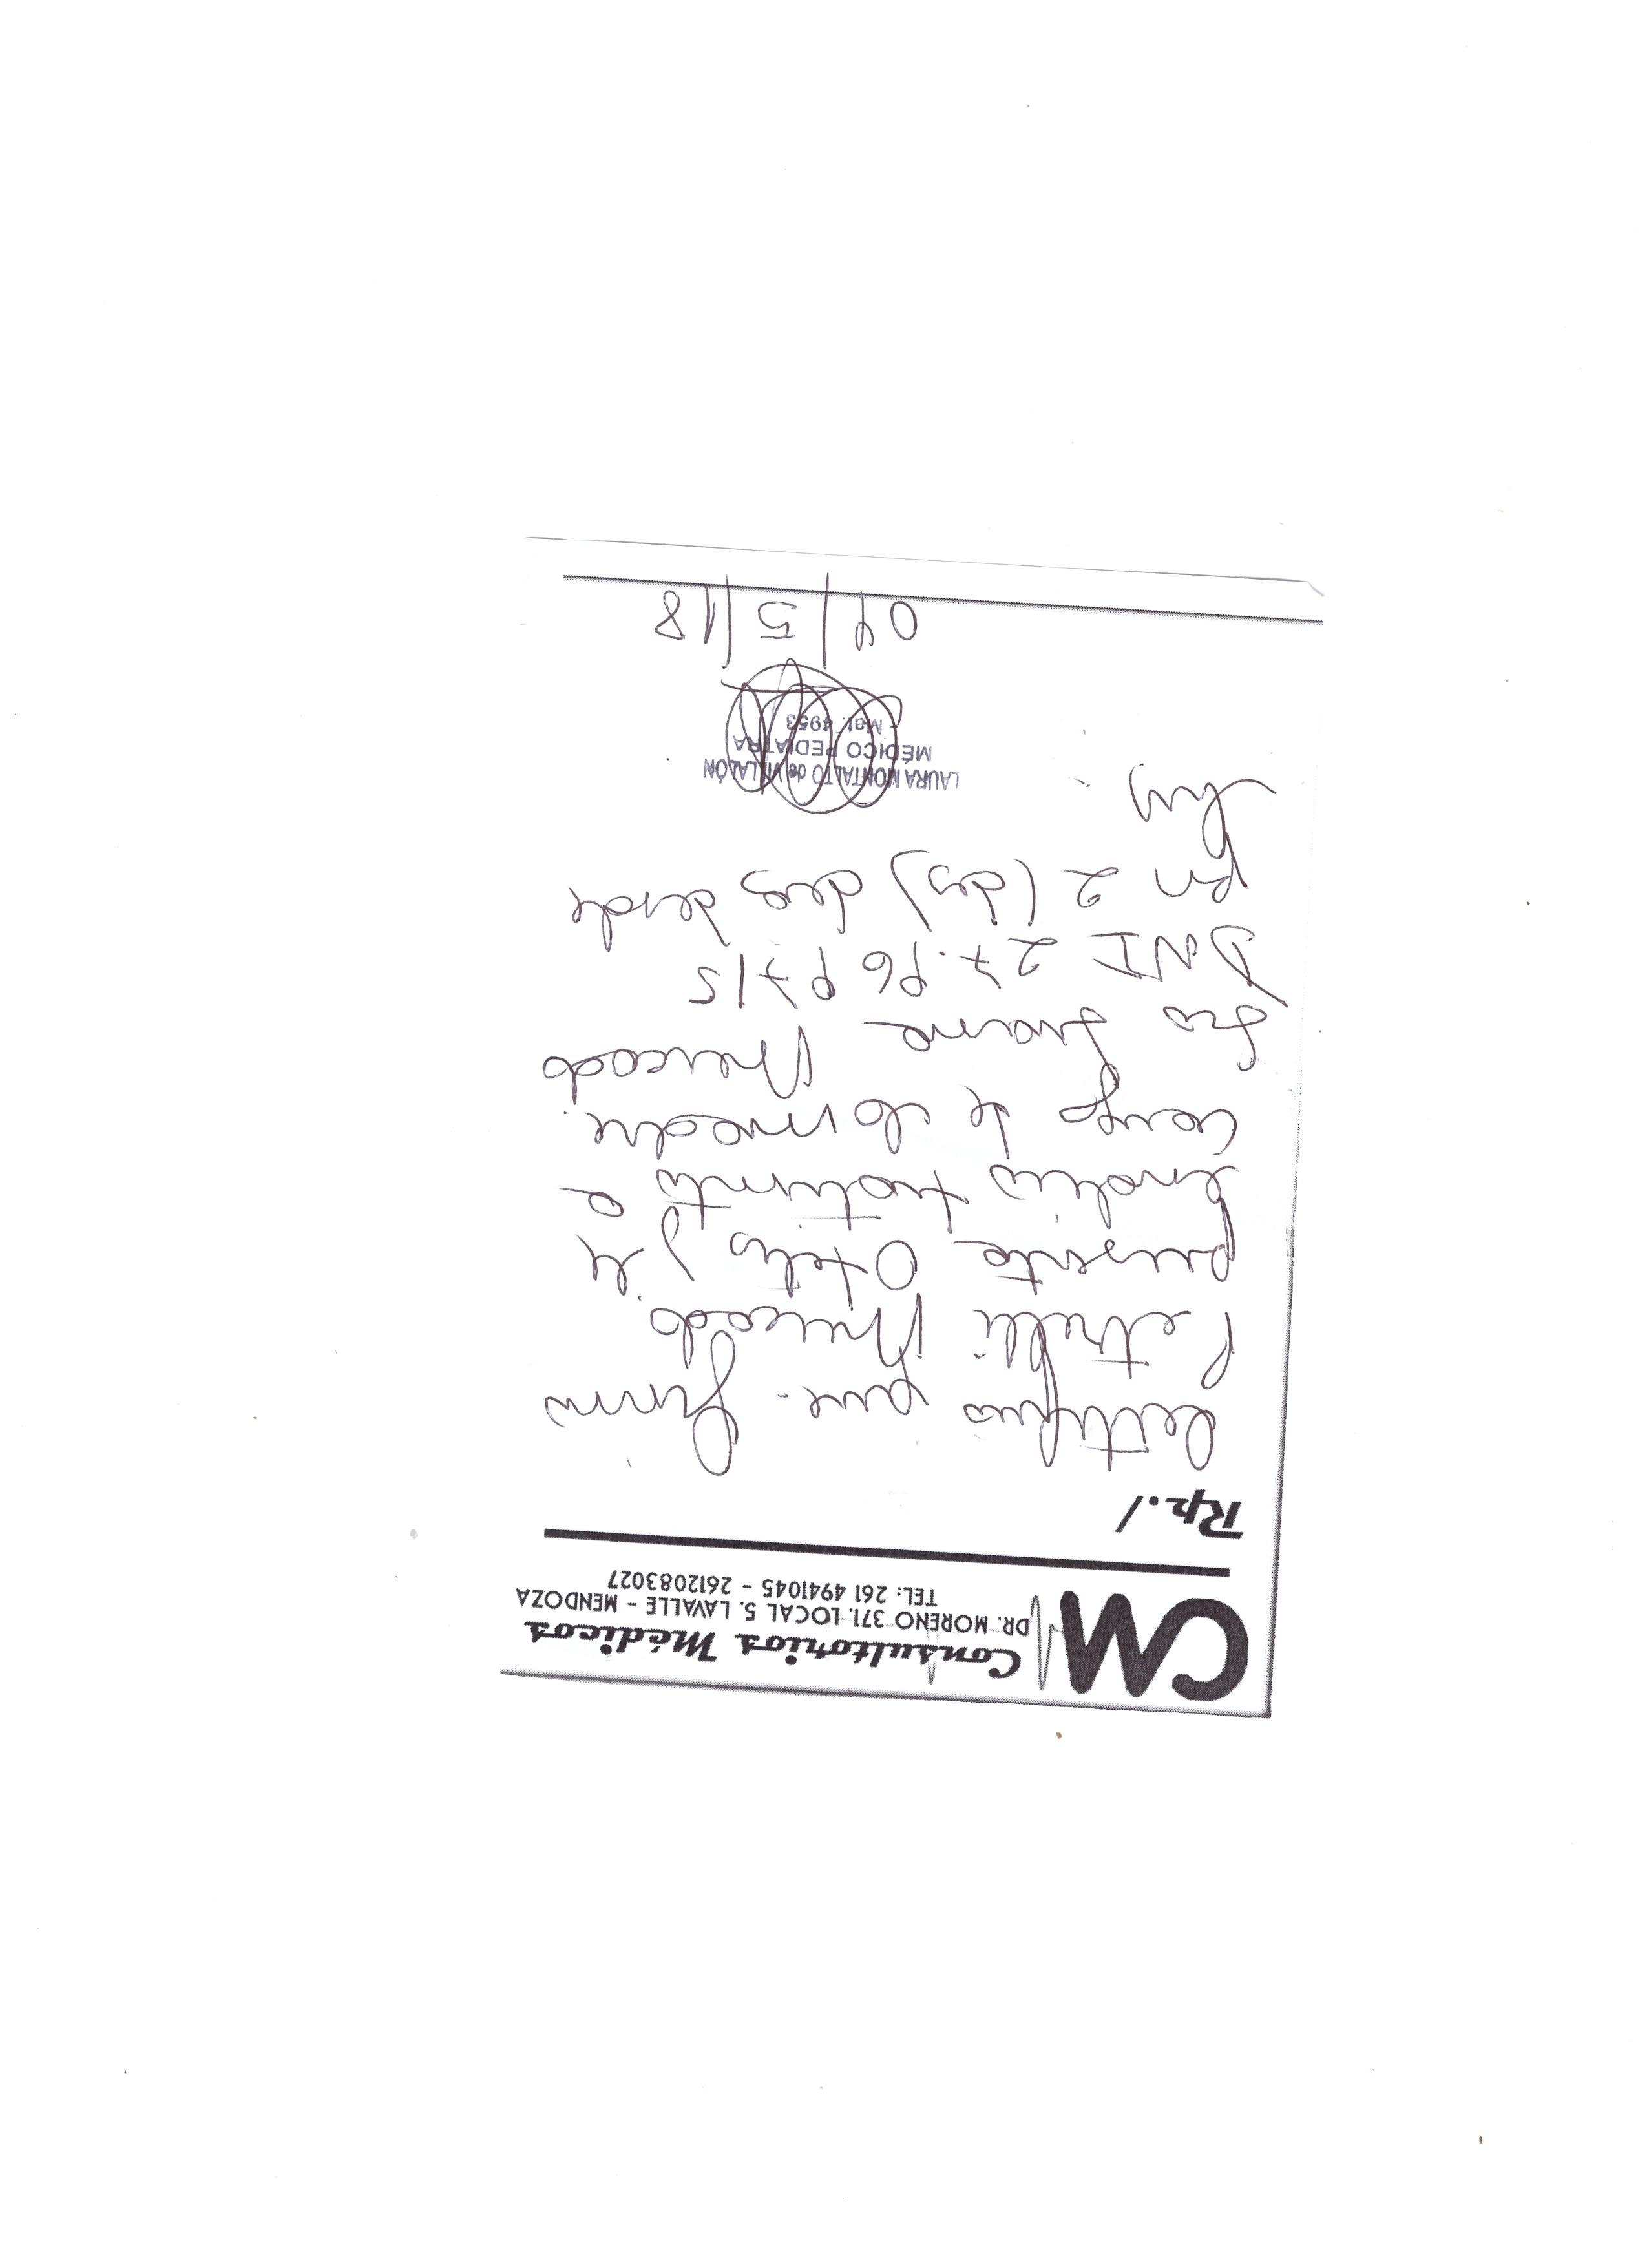 CM Consultorios Médicos
DR. MORENO 371. LOCAL 5. LAVALLE - MENDOZA
TEL: 261 4941045 - 2612083027
Rp./
Certifico que
Petrelli Mercado
presenta Otitis y le
indico tratamiento a
cargo de la madre
Sra Ivana Mercado
DNI
por 2 (dos) días desde
hoy
LAURA MONTALTO de VILLALÓN
MÉDICO PEDIATRA
Mat. 4953
04/5/18